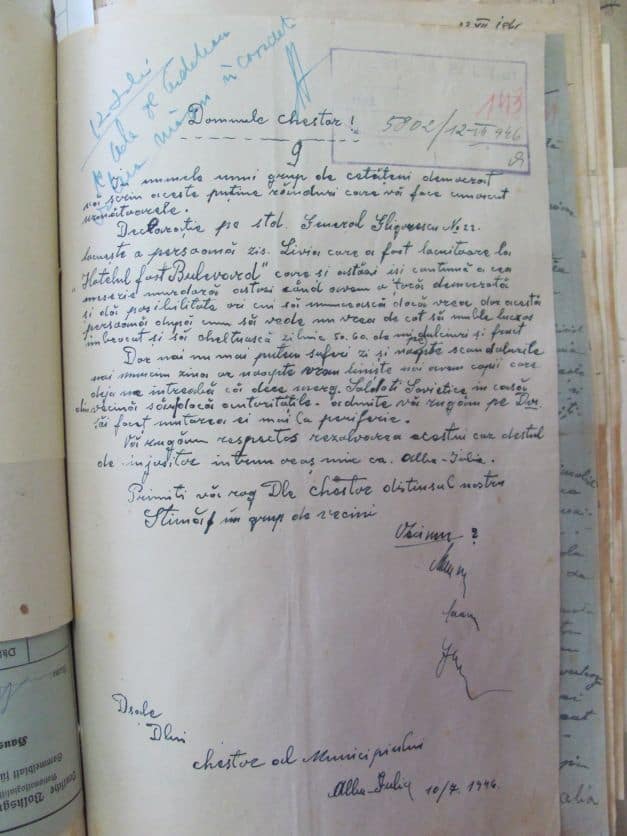 12 VII 1946
12 Iulie
143
5802/12-VII 946
Domnule Chestor!
9
În numele unui grup de cetățeni democrați
vă scrim aceste puține rânduri care vă face cunoscut
următoarele.
Declarație pe std. General Gligorescu No 22.
locuește a persoană zis. Livia care a fost locuitoare la
"Hotelul fost Bulevard" care si astăzi isi continuă a cea
meserie murdară astăzi când avem o țară democrată
si dă posibilitate ori cui să muncească dacă vrea dar acestă
persoană după cum să vede nu vrea de cât să umble luxos
imbrăcat si să cheltuească zilnic 50. 60. de mi pe dulciuri si fruct
Dar noi nu mai putem suferi zi și noapte scandalurile
noi muncim ziua ar noapte vrem liniște noi avem copii care
deja ne intreabă că dece merg Soldati Sovietice in casă
din vecină autoritățile. vă rugăm pe Dvs.
să faceț mutarea ei mai la periferie.
Vă rugăm respectos rezolvarea acestui caz destul
de injositor intrun oraș mic ca. Alba-Iulia.
Primiti vă rog Dle Chestor distinsul nostru
Stimă un grup de vecini
Dsale
Dlui
Chestor al Municipiului
Alba-Iulia 10/7. 1946.